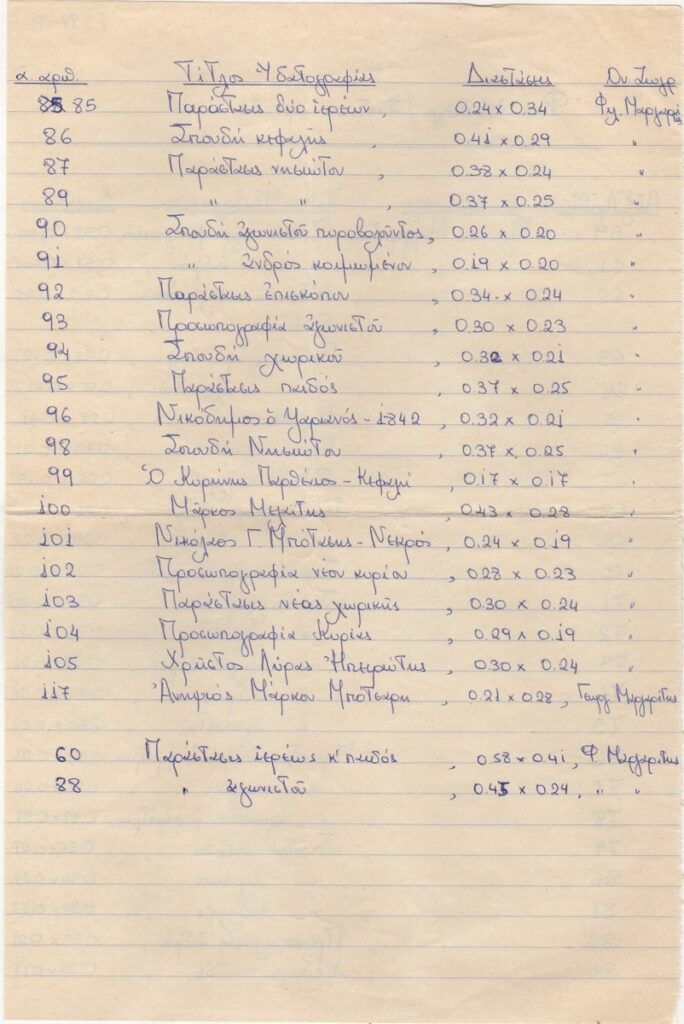 α. αριθ. Τίτλος Ὑδατογραφίας Διαστάσεις Ον. Ζωγρ
85 Παράστασις δύο ἱερέων, 0.24 x 0.34 Φιλ. Μαργαρίτης
86 Σπουδή κεφαλῆς , 0.41 x 0.29 "
87 Παράστασις νησιώτου , 0.38 x 0.24 "
89 " " , 0.37 x 0.25 "
90 Σπουδή ἀγωνιστοῦ πυροβολοῦντος, 0.26 x 0.20 "
91 " ἀνδρός κοιμωμένου , 0.19 x 0.20 "
92 Παράστασις ἐπισκόπου , 0.34 x 0.24 "
93 Προσωπογραφία ἀγωνιστοῦ , 0.30 x 0.23 "
94 Σπουδή χωρικοῦ , 0.32 x 0.21 "
95 Παράστασις παιδός , 0.37 x 0.25 "
96 Νικόδημος ὁ Ψαριανός - 1842 , 0.32 x 0.21 "
98 Σπουδή Νησιώτου , 0.37 x 0.25 "
99 Ὁ Κυρήνης Παρθένιος - Κεφαλή , 0.17 x 0.17 "
100 Μᾶρκος Μελίτης , 0.43 x 0.28 "
101 Νικόλαος Γ. Μπότασης - Νεκρός , 0.24 x 0.19 "
102 Προσωπογραφία νέου κυρίου , 0.28 x 0.23 "
103 Παράστασις νέας χωρικῆς , 0.30 x 0.24 "
104 Προσωπογραφία Κυρίας , 0.29 x 0.19 "
105 Χρῆστος Λύρας Ἠπειρώτης , 0.30 x 0.24 "
117 Ἀνηψιός Μάρκου Μπότσαρη , 0.21 x 0.28 , Γεωργ. Μαργαρίτης
60 Παράστασις ἱερέως κ' παιδός , 0.58 x 0.41 , Φ. Μαργαρίτης
88 " ἀγωνιστοῦ , 0.45 x 0.24 , " "